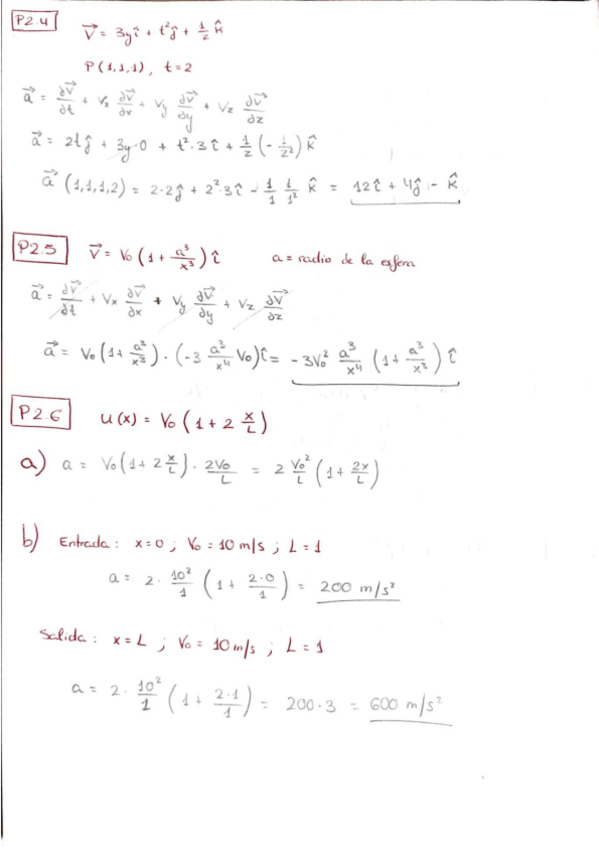 P2.4 V⃗ = 3yî + t²ĵ + 1/z k̂
P(1,1,1), t=2
a⃗ = ∂V⃗/∂t + Vx ∂V⃗/∂x + Vy ∂V⃗/∂y + Vz ∂V⃗/∂z
a⃗ = 2tĵ + 3y·0 + t²·3î + 1/z (-1/z²) k̂
a⃗ (1,1,1,2) = 2·2ĵ + 2²·3î - 1/1 1/1² k̂ = 12î + 4ĵ - k̂
P2.5 V⃗ = V₀ (1 + a³/x³) î a = radio de la esfera
a⃗ = ∂V⃗/∂t + Vx ∂V⃗/∂x + Vy ∂V⃗/∂y + Vz ∂V⃗/∂z
a⃗ = V₀ (1 + a³/x³) · (-3 a³/x⁴ V₀) î = -3V₀² a³/x⁴ (1 + a³/x³) î
P2.6 u(x) = V₀ (1 + 2 x/L)
a) a = V₀ (1 + 2 x/L) · 2V₀/L = 2 V₀²/L (1 + 2x/L)
b) Entrada: x=0 ; V₀ = 10 m/s ; L = 1
a = 2 · 10²/1 (1 + 2·0/1) = 200 m/s²
Salida: x = L ; V₀ = 10 m/s ; L = 1
a = 2 · 10²/1 (1 + 2·1/1) = 200·3 = 600 m/s²